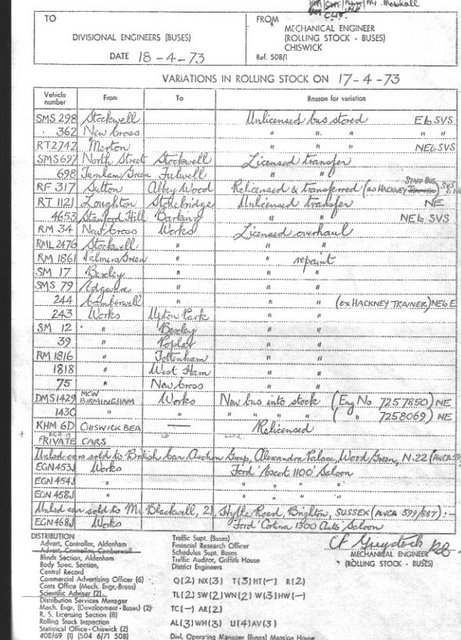 TO
DIVISIONAL ENGINEERS (BUSES)
DATE 18-4-73
FROM
MECHANICAL ENGINEER
(ROLLING STOCK - BUSES)
CHISWICK
Ref. 508/1
VARIATIONS IN ROLLING STOCK ON 17-4-73
Vehicle number From To Reason for variation
SMS 298 Stockwell Unlicensed bus stored E6 SVS
362 New Cross " " "
RT 2742 Merton " " " NE6 SVS
SMS 697 North Street Stockwell Licensed transfer
698 Turnham Green Fulwell " "
RF 317 Sutton Abbey Wood Relicensed & transferred (as HACKNEY STAFF BUS
RT 1121 Loughton Stonebridge Unlicensed transfer NE
4653 Stamford Hill Barking " " NE6 SVS
RM 34 New Cross Works Licensed overhaul
RML 2476 Stockwell " " "
RM 1861 Palmers Green " " repaint
SM 17 Bexley " " "
SMS 79 Edgware " " "
244 Camberwell " " " (ex HACKNEY TRAINER) NE6 E
243 Works Upton Park " "
SM 12 " Bexley " "
39 " Poplar " "
RM 1816 " Tottenham " "
1818 " West Ham " "
75 " New Cross " "
DMS 1429 MCW BIRMINGHAM Works New bus into stock (Eng No 7257850) NE
1430 " " " " " " ( " 7258069) NE
KHM 6D CHISWICK BEA — Relicensed
PRIVATE CARS
Unlsd. cars sold to British Car Auction Group, Alexandra Palace, Wood Green, N.22
EGN 453J Works Ford 'Escort 1100' Saloon
EGN 454J " " " "
EGN 458J " " " "
Unlsd car sold to Mr Blackwell, 21 Road, Brighton, SUSSEX (AWCA 599/887) :-
EGN 468J Works Ford 'Cortina 1300' Auto Saloon
DISTRIBUTION
Advert. Controller, Aldenham
Advert. Controller, Camberwell
Blinds Section, Aldenham
Body Spec. Section,
Control Record
Commercial Advertising Officer (6)
Costs Office (Mech. Engr-Buses)
Scientific Adviser (2)
Distribution Services Manager
Mech. Engr. (Development-Buses) (2)
R. S. Licensing Section (8)
Rolling Stock Inspection
Statistical Office-Chiswick (2)
408/69 (1) (504 6/71 508)
Traffic Supt. (Buses)
Financial Research Officer
Schedules Supt. Buses
Traffic Auditor, Griffith House
District Engineers
Q(2) NX(3) T(3) HT(-) R(2)
TL(2) SW(2) WN(2) W(3) HW(-)
TC(-) AR(2)
AL(3) WH(3) U(4) AV(3)
Divl. Operating Manager (Buses) Manson House
MECHANICAL ENGINEER
(ROLLING STOCK - BUSES)